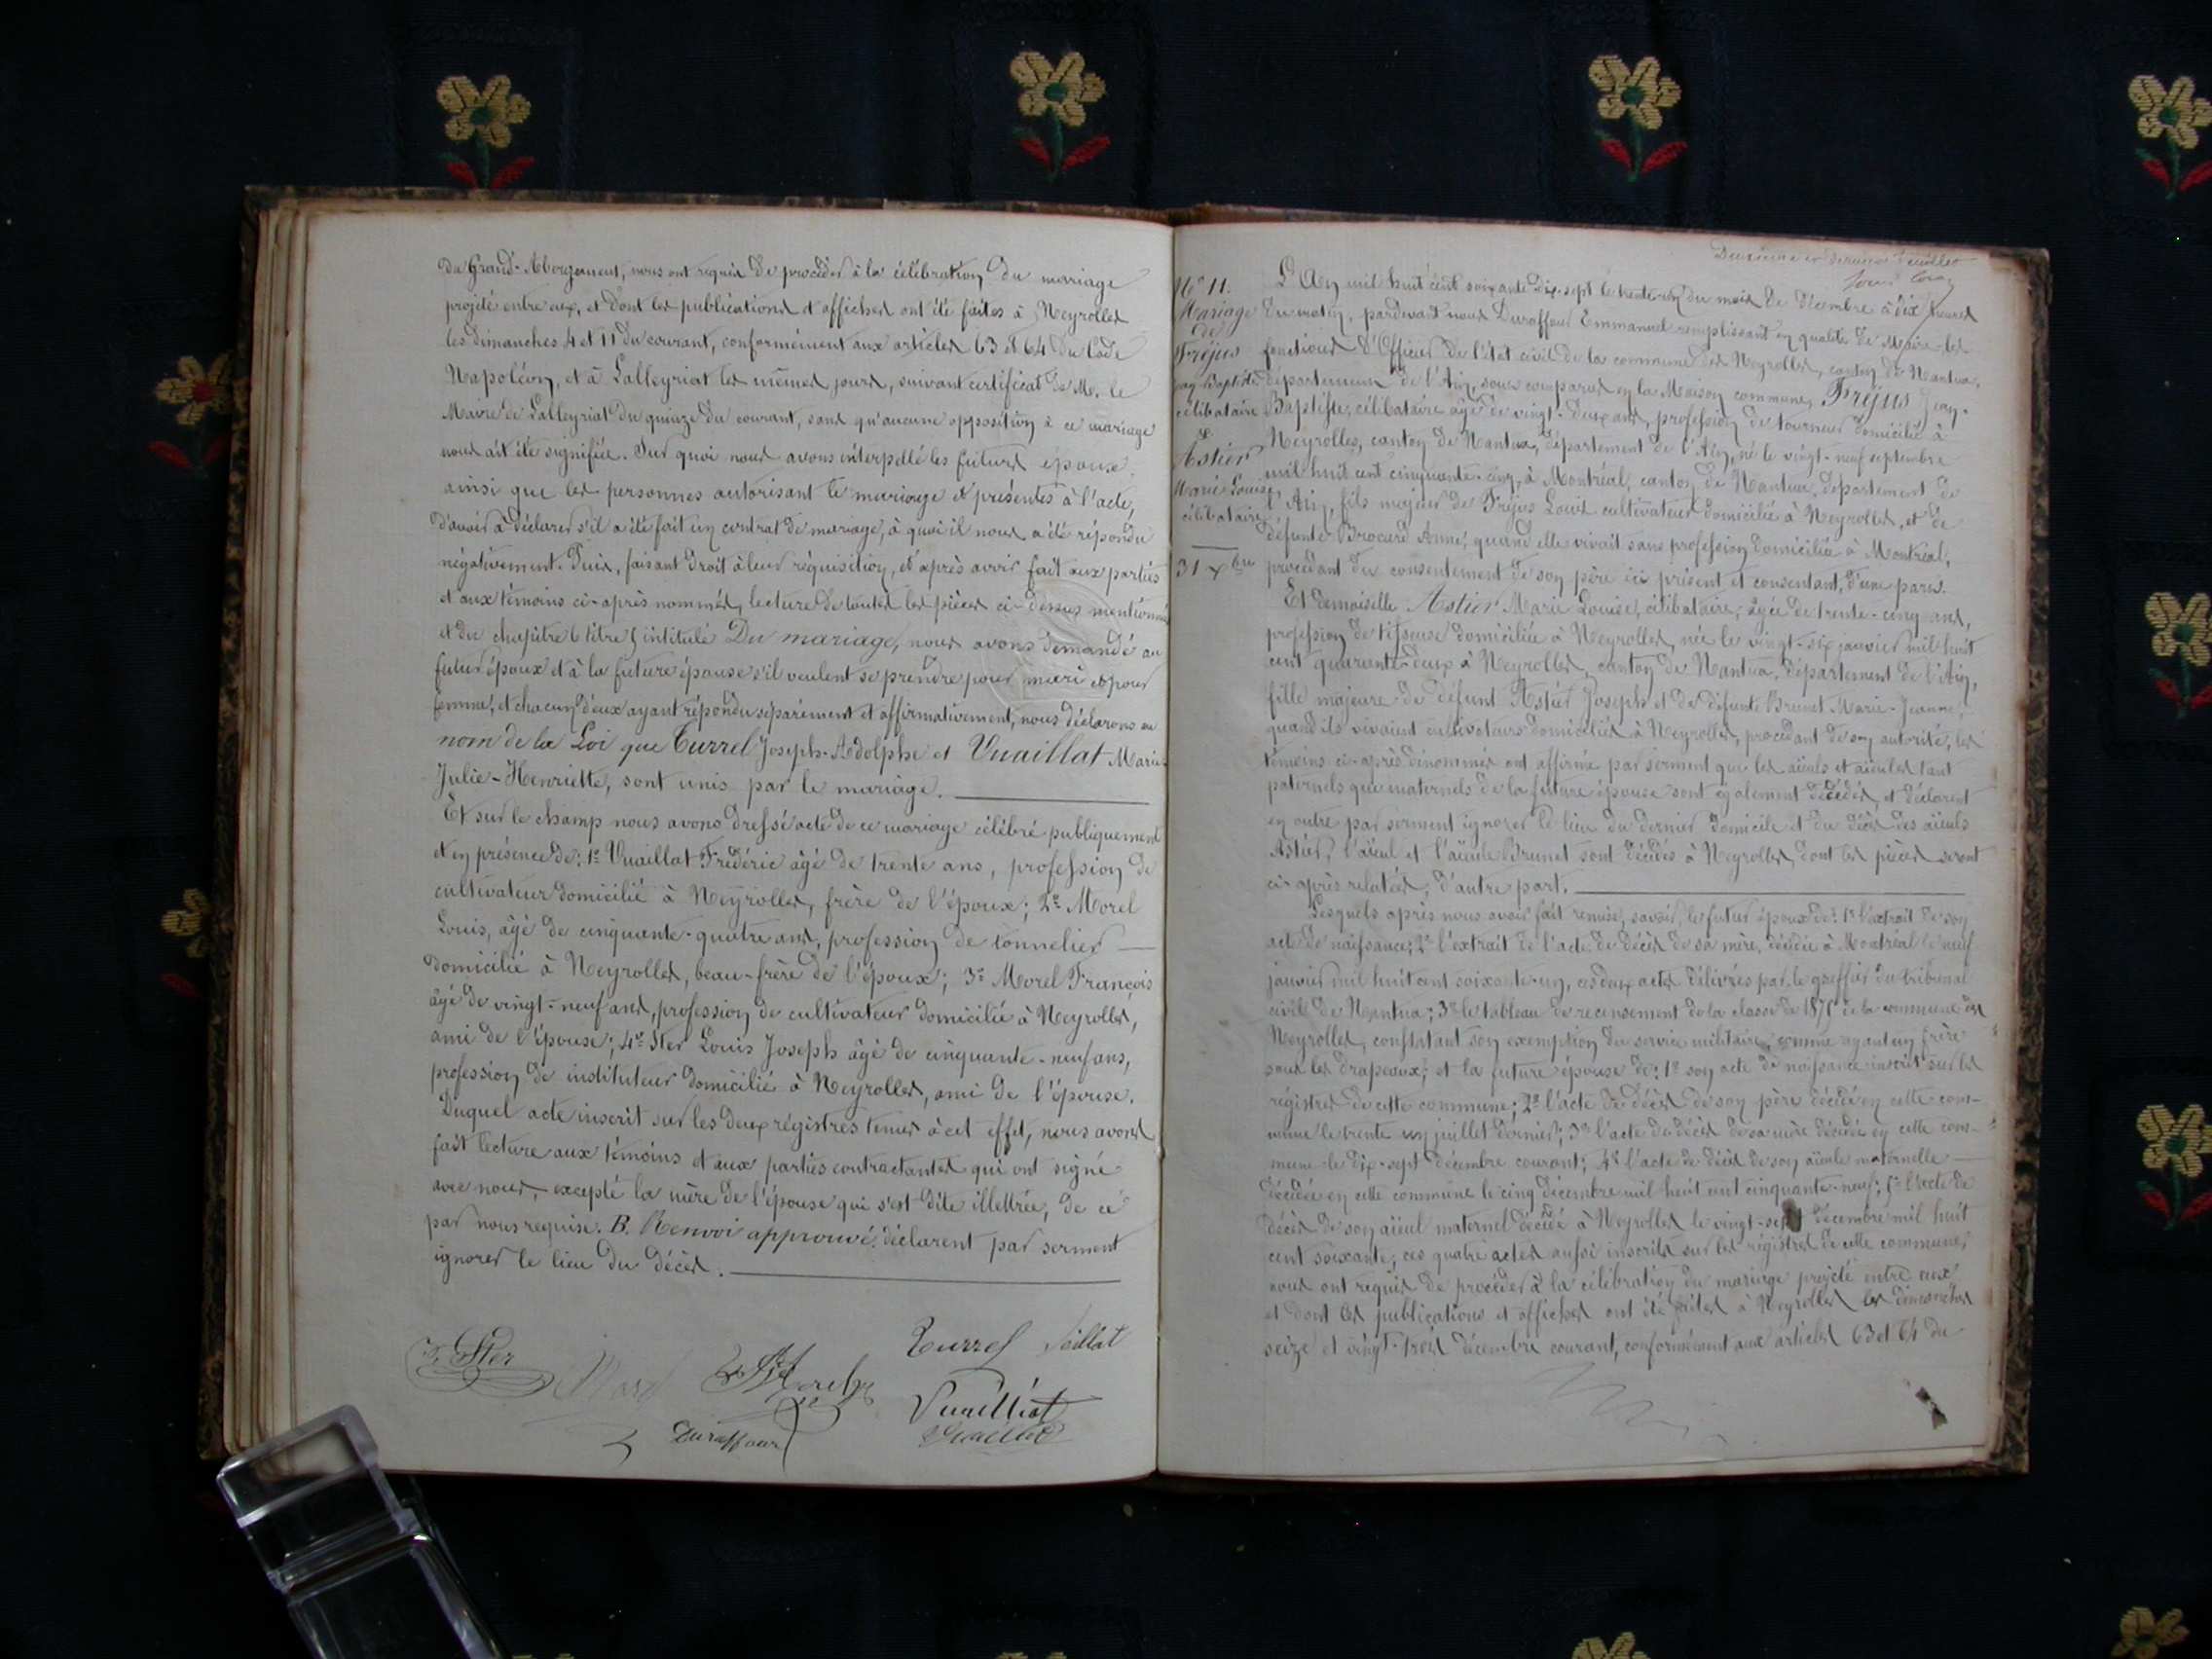 du Grand-Abergement, nous ont requis de procéder à la célébration du mariage
projeté entre eux, et dont les publications et affiches ont été faites à Neyrolles
les dimanches 4 et 11 du courant, conformément aux articles 63 et 64 du Code
Napoléon, et à Lalleyriat les mêmes jours, suivant certificat de M. le
Maire de Lalleyriat du quinze du courant, sans qu'aucune opposition à ce mariage
nous ait été signifiée. Sur quoi nous avons interpellé les futurs époux,
ainsi que les personnes autorisant le mariage et présentes à l'acte,
d'avoir à déclarer s'il a été fait un contrat de mariage, à quoi il nous a été répondu
négativement. Puis, faisant droit à leur réquisition, et après avoir fait aux parties
et aux témoins ci-après nommés, lecture de toutes les pièces ci-dessus mentionnées
et du chapitre 6 titre 5 intitulé Du mariage, nous avons demandé au
futur époux et à la future épouse s'il veulent se prendre pour mari et pour
femme, et chacun d'eux ayant répondu séparément et affirmativement, nous déclarons au
nom de la Loi que Turrel Joseph-Adolphe et Vuaillat Marie-
Julie-Henriette, sont unis par le mariage.
Et sur le champ nous avons dressé acte de ce mariage célébré publiquement
et en présence de: 1º Vuaillat Frédéric âgé de trente ans, profession de
cultivateur domicilié à Neyrolles, frère de l'époux; 2º Morel
Louis, âgé de cinquante-quatre ans, profession de tonnelier
domicilié à Neyrolles, beau-frère de l'époux; 3º Morel François
âgé de vingt-neuf ans, profession de cultivateur domicilié à Neyrolles,
ami de l'épouse; 4º Ster Louis Joseph âgé de cinquante-neuf ans,
profession de instituteur domicilié à Neyrolles, ami de l'épouse.
Duquel acte inscrit sur les deux régistres tenus à cet effet, nous avons
fait lecture aux témoins et aux parties contractantes qui ont signé
avec nous, excepté la mère de l'épouse qui s'est dite illettrée, de ce
par nous requise. B. Renvoi approuvé. déclarent par serment
ignorer le lieu du décès.
Ster Turrel
Morel
Duraffour
Deuxième et dernier feuillet
Nº 11.
Mariage
de
Fréjus
Jean-Baptiste
célibataire
&
Astier
Marie Louise
célibataire
31 Xbre
L'An mil huit cent soixante dix-sept le trente-un du mois de décembre à dix heures
du matin, pardevant nous Duraffour Emmanuel remplissant en qualité de Maire les
fonctions d'Officier de l'état civil de la commune des Neyrolles, canton de Nantua,
département de l'Ain, sont comparus en la Maison commune, Fréjus Jean-
Baptiste, célibataire âgé de vingt-deux ans, profession de tourneur domicilié à
Neyrolles, canton de Nantua, département de l'Ain, né le vingt-neuf septembre
mil huit cent cinquante-cinq, à Montréal, canton de Nantua, département de
l'Ain, fils majeur de Fréjus Louis cultivateur domicilié à Neyrolles, et de
défunte Brocard Anne, quand elle vivait sans profession domiciliée à Montréal,
procédant du consentement de son père ici présent et consentant, d'une part.
Et demoiselle Astier Marie Louise, célibataire, âgée de trente-cinq ans,
profession de tisseuse domiciliée à Neyrolles, née le vingt-six janvier mil huit
cent quarante-deux à Neyrolles, canton de Nantua, département de l'Ain,
fille majeure de défunt Astier Joseph et de défunte Brunet Marie-Jeanne,
quand ils vivaient cultivateurs domiciliés à Neyrolles, procédant de son autorité, les
témoins ci-après dénommés ont affirmé par serment que les aïeuls et aïeules tant
paternels que maternels de la future épouse sont également décédés, et déclarent
en outre par serment ignorer le lieu du dernier domicile et du décès des aïeuls
Astier, l'aïeul et l'aïeule Brunet sont décédés à Neyrolles, dont les pièces seront
ci-après relatées, d'autre part.
Lesquels après nous avoir fait remise, savoir, le futur époux de: 1º l'extrait de son
acte de naissance; 2º l'extrait de l'acte de décès de sa mère, décédée à Montréal le neuf
janvier mil huit cent soixante-un, ces deux actes délivrés par le greffier du tribunal
civil de Nantua; 3º le tableau de recensement de la classe de 1875 de la commune des
Neyrolles, constatant son exemption du service militaire, comme ayant un frère
sous les drapeaux; et la future épouse de: 1º son acte de naissance inscrit sur les
régistres de cette commune; 2º l'acte de décès de son père décédé en cette com-
mune le trente un juillet dernier; 3º l'acte de décès de sa mère décédée en cette com-
mune le dix-sept décembre courant; 4º l'acte de décès de son aïeule maternelle
décédée en cette commune le cinq décembre mil huit cent cinquante-neuf; 5º l'acte de
décès de son aïeul maternel décédé à Neyrolles le vingt-sept décembre mil huit
cent soixante; ces quatre actes aussi inscrits sur les régistres de cette commune;
nous ont requis de procéder à la célébration du mariage projeté entre eux
et dont les publications et affiches ont été faites à Neyrolles les dimanches
seize et vingt-trois décembre courant, conformément aux articles 63 et 64 du